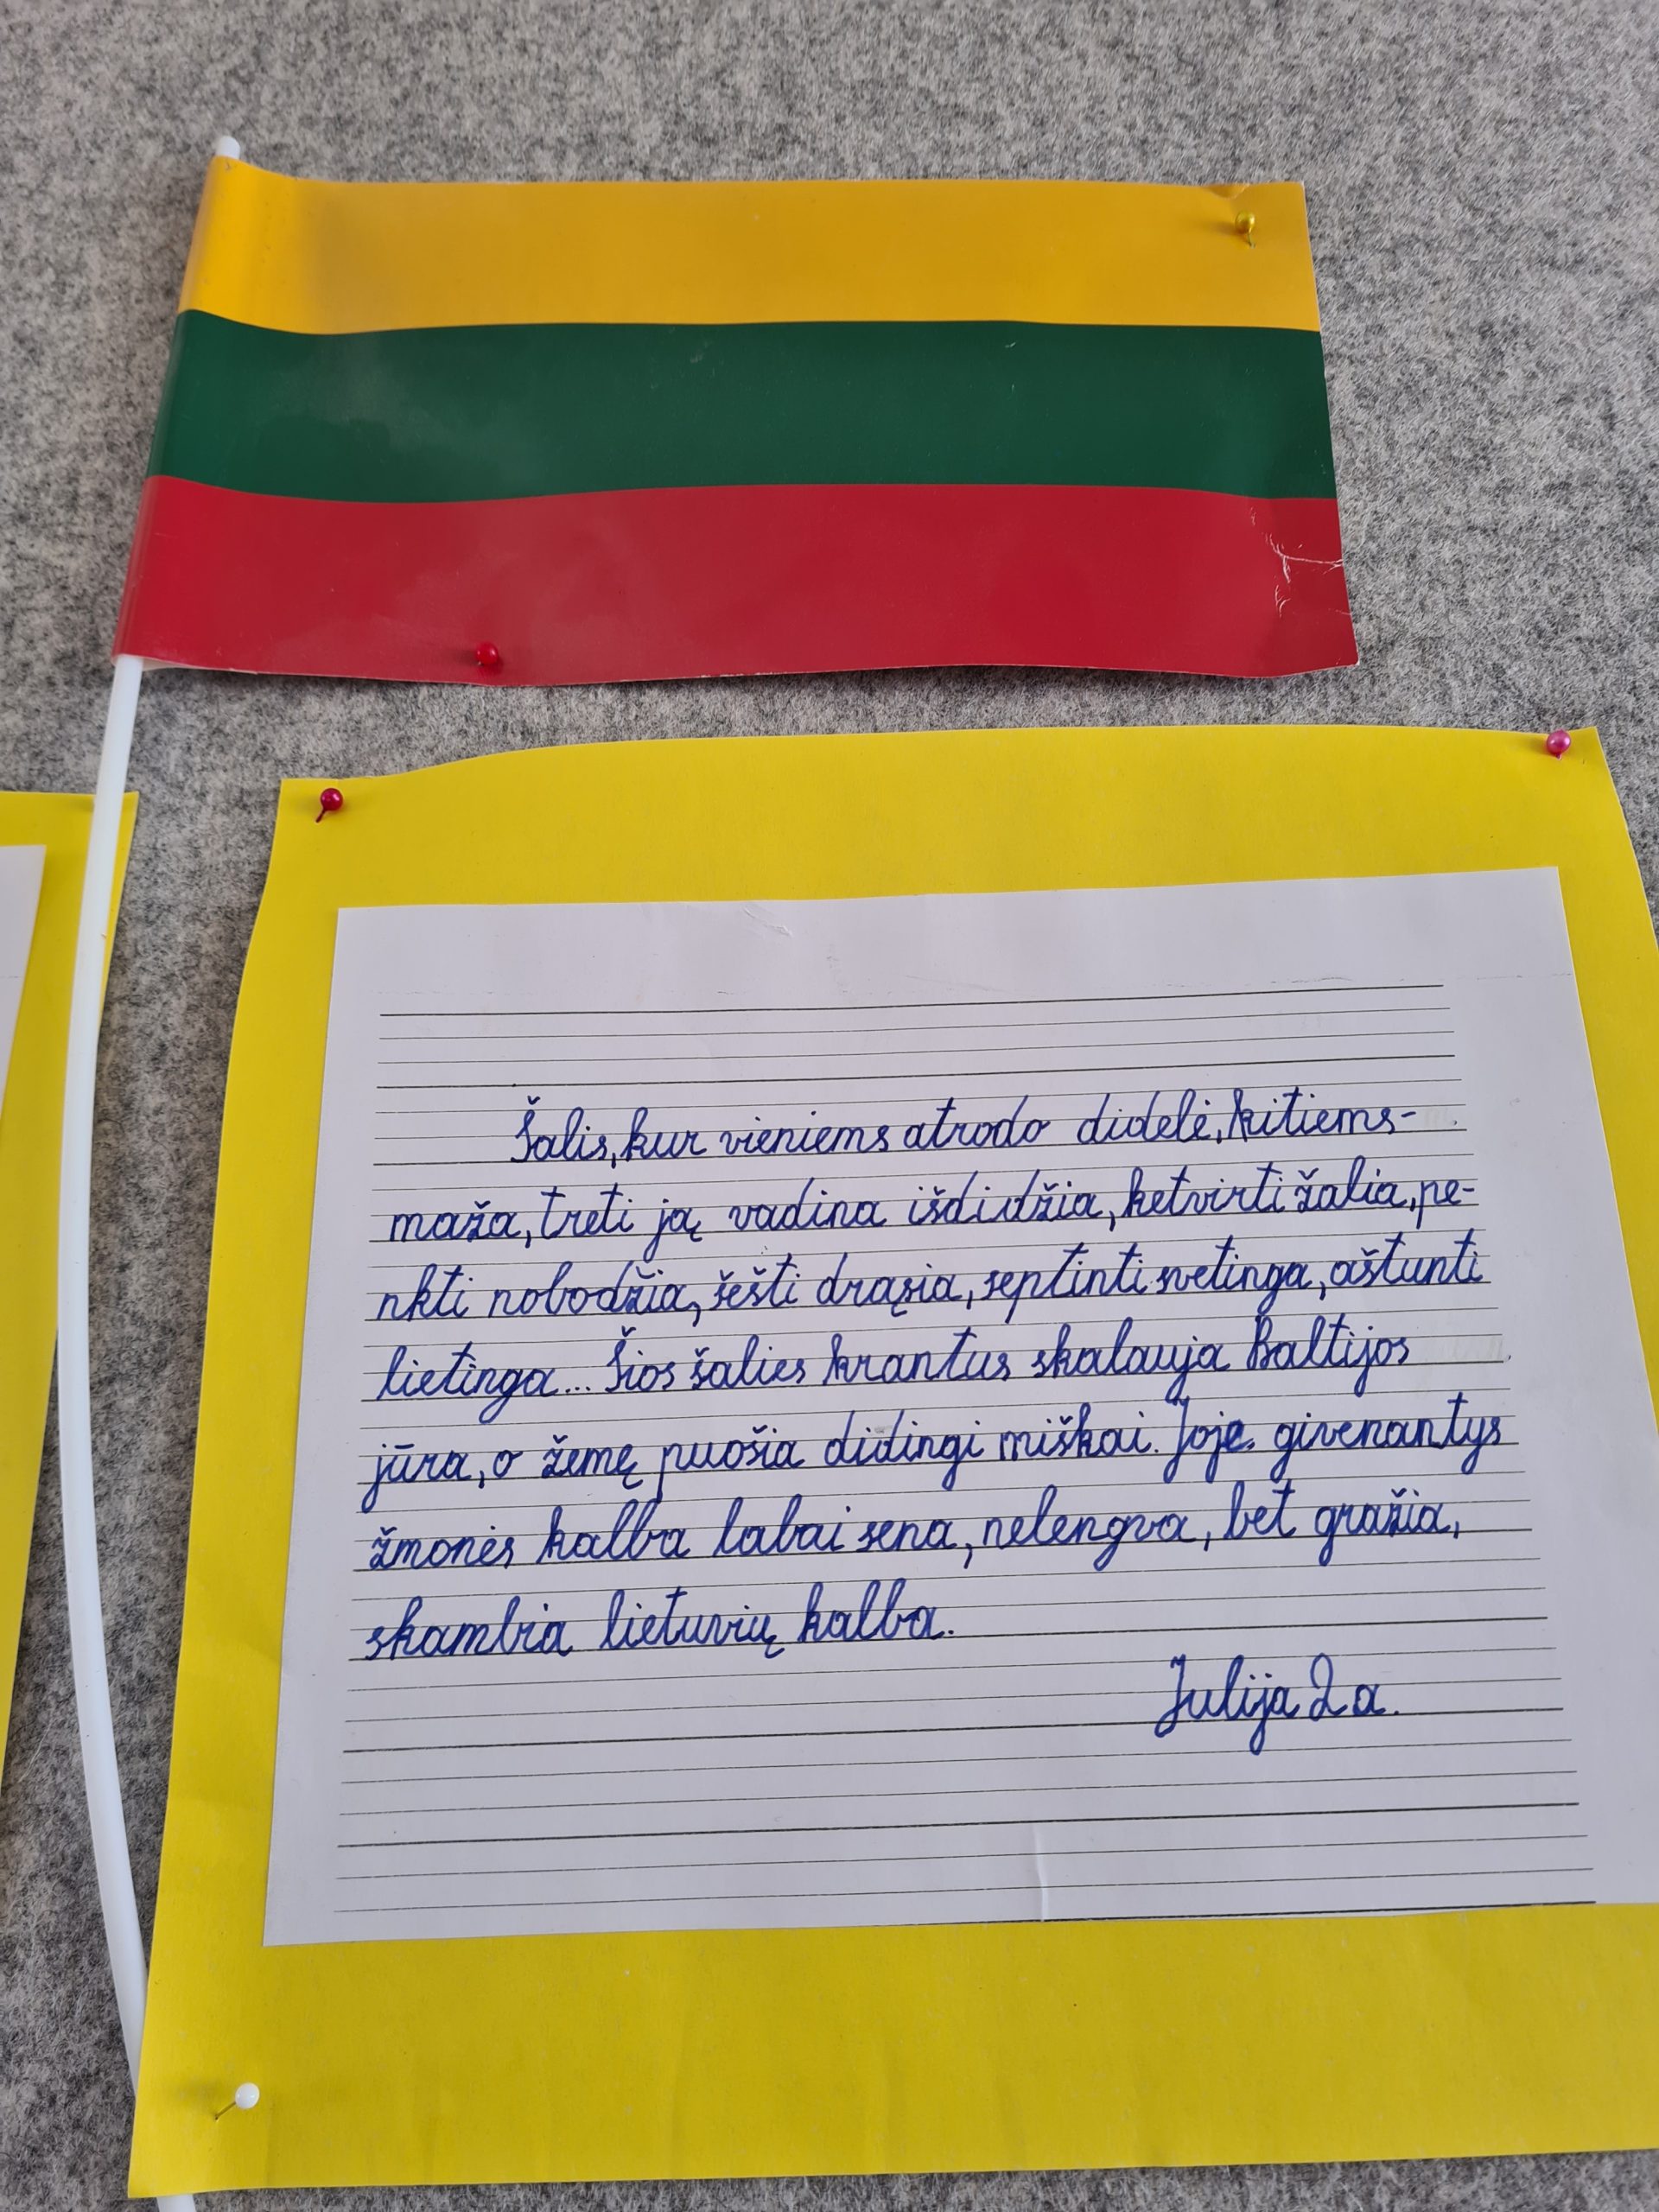 Šalis, kur vieniems atrodo didelė, kitiems-
maža, treti ją vadina išdidžia, ketvirti žalia, pe-
nkti nobodžia, šešti drąsia, septinti svetinga, aštunti
lietinga... Šios šalies krantus skalauja Baltijos
jūra, o žemę puošia didingi miškai. Joje givenantys
žmonės kalba labai sena, nelengva, bet gražia,
skambia lietuvių kalba.
Julija 2 a.